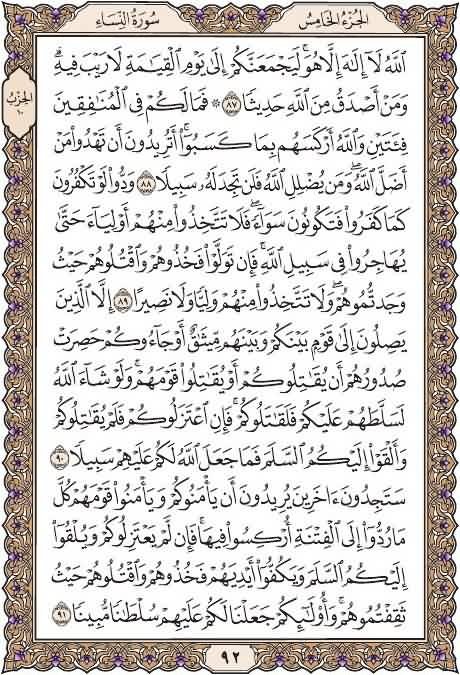 الجزء الخامس
سورة النساء
الحزب
١٠
ٱللَّهُ لَآ إِلَٰهَ إِلَّا هُوَۚ لَيَجْمَعَنَّكُمْ إِلَىٰ يَوْمِ ٱلْقِيَٰمَةِ لَا رَيْبَ فِيهِۗ
وَمَنْ أَصْدَقُ مِنَ ٱللَّهِ حَدِيثًا ٨٧ ۞ فَمَا لَكُمْ فِى ٱلْمُنَٰفِقِينَ
فِئَتَيْنِ وَٱللَّهُ أَرْكَسَهُم بِمَا كَسَبُوٓا۟ۚ أَتُرِيدُونَ أَن تَهْدُوا۟ مَنْ
أَضَلَّ ٱللَّهُۖ وَمَن يُضْلِلِ ٱللَّهُ فَلَن تَجِدَ لَهُۥ سَبِيلًا ٨٨ وَدُّوا۟ لَوْ تَكْفُرُونَ
كَمَا كَفَرُوا۟ فَتَكُونُونَ سَوَآءًۖ فَلَا تَتَّخِذُوا۟ مِنْهُمْ أَوْلِيَآءَ حَتَّىٰ
يُهَاجِرُوا۟ فِى سَبِيلِ ٱللَّهِۚ فَإِن تَوَلَّوْا۟ فَخُذُوهُمْ وَٱقْتُلُوهُمْ حَيْثُ
وَجَدتُّمُوهُمْۖ وَلَا تَتَّخِذُوا۟ مِنْهُمْ وَلِيًّا وَلَا نَصِيرًا ٨٩ إِلَّا ٱلَّذِينَ
يَصِلُونَ إِلَىٰ قَوْمٍۭ بَيْنَكُمْ وَبَيْنَهُم مِّيثَٰقٌ أَوْ جَآءُوكُمْ حَصِرَتْ
صُدُورُهُمْ أَن يُقَٰتِلُوكُمْ أَوْ يُقَٰتِلُوا۟ قَوْمَهُمْۚ وَلَوْ شَآءَ ٱللَّهُ
لَسَلَّطَهُمْ عَلَيْكُمْ فَلَقَٰتَلُوكُمْۚ فَإِنِ ٱعْتَزَلُوكُمْ فَلَمْ يُقَٰتِلُوكُمْ
وَأَلْقَوْا۟ إِلَيْكُمُ ٱلسَّلَمَ فَمَا جَعَلَ ٱللَّهُ لَكُمْ عَلَيْهِمْ سَبِيلًا ٩٠
سَتَجِدُونَ ءَاخَرِينَ يُرِيدُونَ أَن يَأْمَنُوكُمْ وَيَأْمَنُوا۟ قَوْمَهُمْ كُلَّ
مَا رُدُّوٓا۟ إِلَى ٱلْفِتْنَةِ أُرْكِسُوا۟ فِيهَاۚ فَإِن لَّمْ يَعْتَزِلُوكُمْ وَيُلْقُوٓا۟
إِلَيْكُمُ ٱلسَّلَمَ وَيَكُفُّوٓا۟ أَيْدِيَهُمْ فَخُذُوهُمْ وَٱقْتُلُوهُمْ حَيْثُ
ثَقِفْتُمُوهُمْۚ وَأُو۟لَٰٓئِكُمْ جَعَلْنَا لَكُمْ عَلَيْهِمْ سُلْطَٰنًا مُّبِينًا ٩١
٩٢